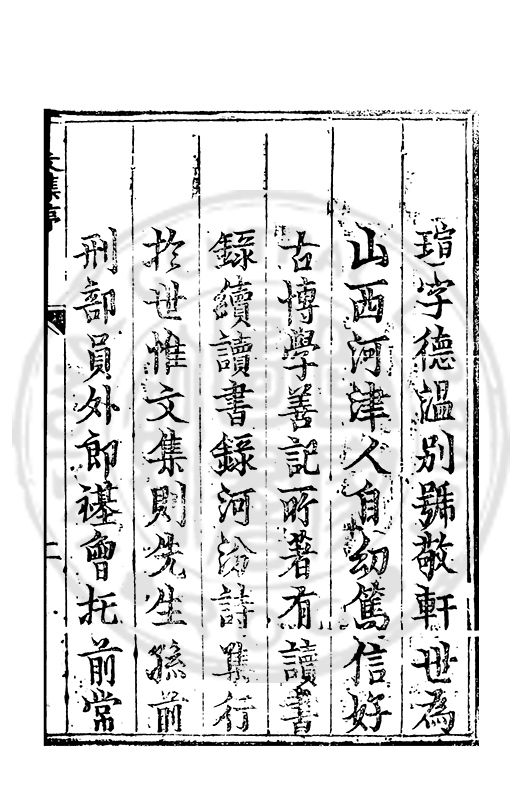 瑄字德温别號敬軒世為
山西河津人自幼篤信好
古博學善記所著有讀書
錄續讀書錄河汾詩集行
扵世惟文集則先生孫前
刑部員外郎禥曾托前常
文集序
二